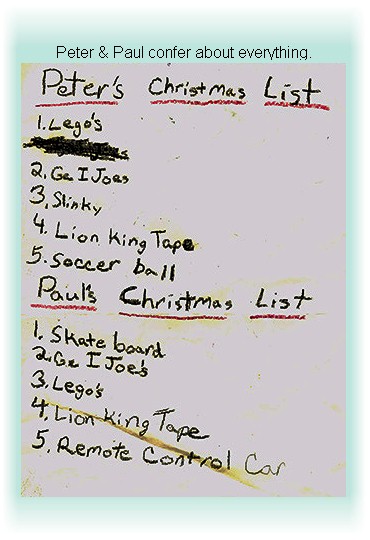 Peter & Paul confer about everything.
Peter's Christmas List
1. Lego's
2. Ge I Joes
3. Slinky
4. Lion King Tape
5. Soccer ball
Paul's Christmas List
1. Skate board
2. Ge I Joe's
3. Lego's
4. Lion King Tape
5. Remote Control Car